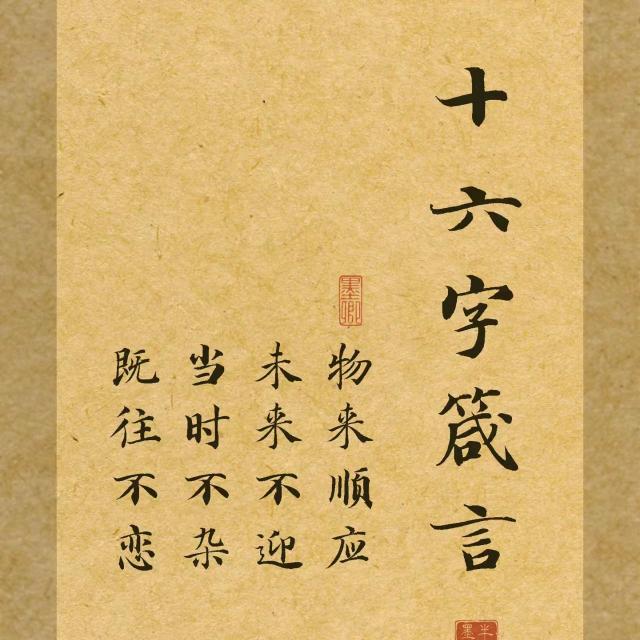 十六字箴言
物来顺应
未来不迎
当时不杂
既往不恋
墨卿